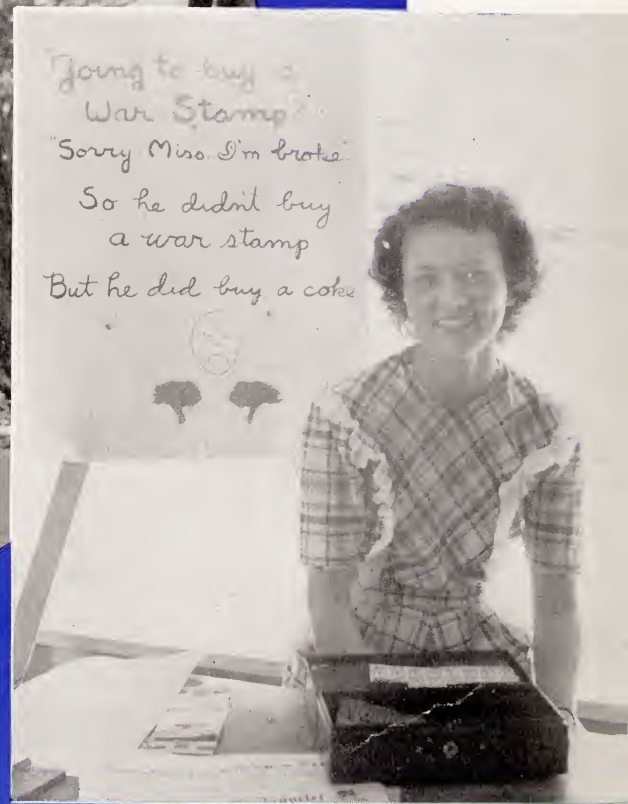 "Going to buy a
War Stamp?"
"Sorry Miss. I'm broke"
So he didn't buy
a war stamp
But he did buy a coke